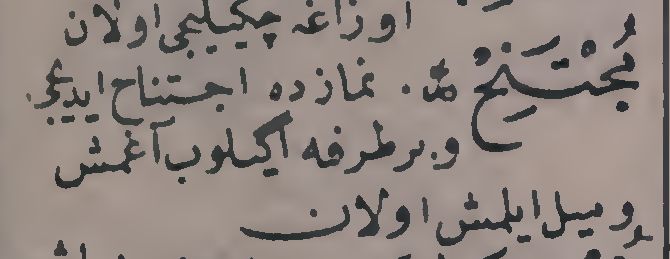 اوزاغه چكيليجى اولان
مُجْتَنِحْ مذ. نمازده اجتناح ايديجى.
و. بر طرفه اكيلوب آغمش
وميل ايلمش اولان